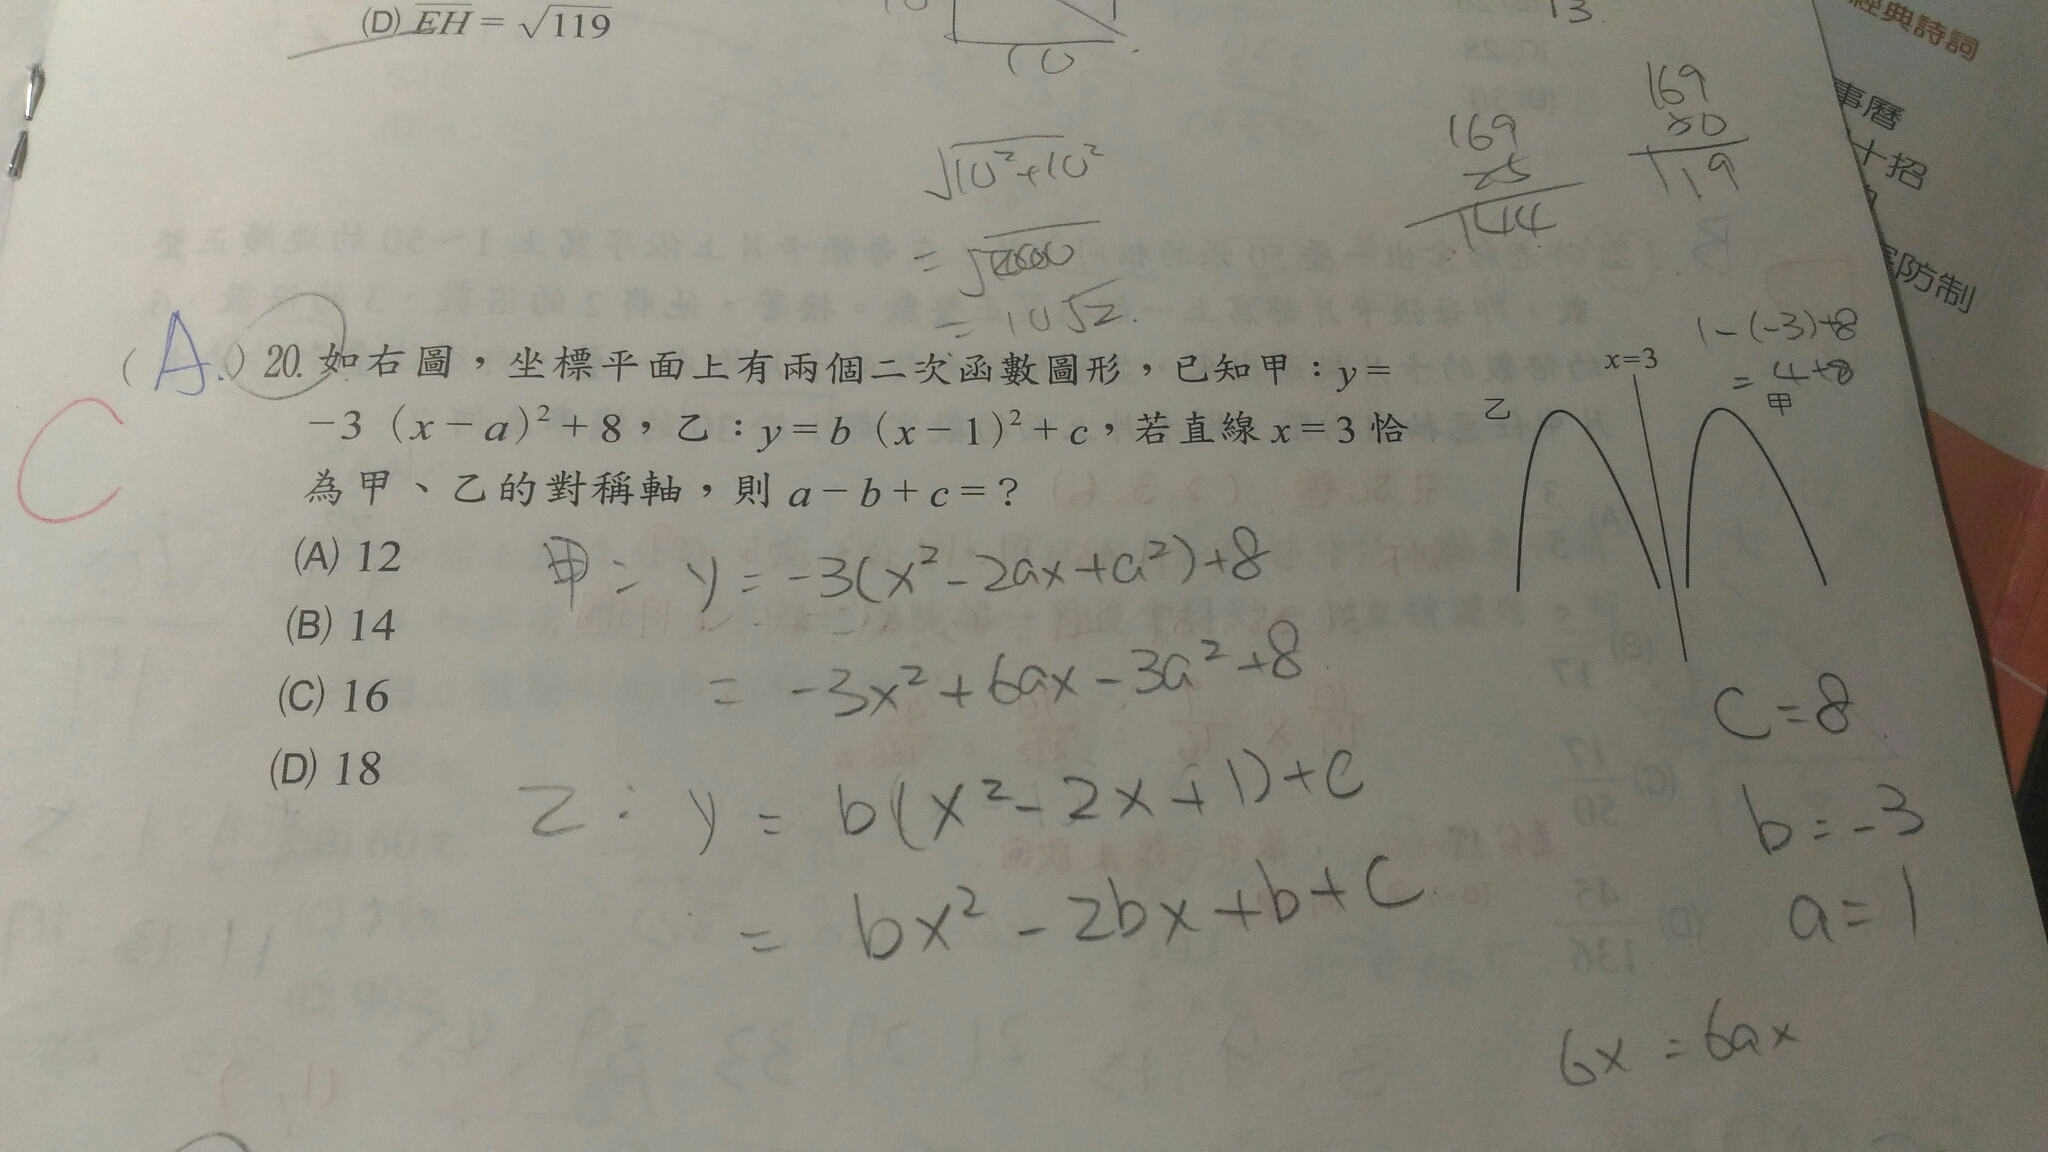 (D) EH = √119
10
13
經典詩詞
事曆
十招
防制
√10²+10²
= 10√2.
169
25
144
169
50
119
1-(-3)+8
= 4+8
( A. ) 20. 如右圖，坐標平面上有兩個二次函數圖形，已知甲：y =
C
-3 (x-a)²+8，乙：y=b (x-1)²+c，若直線 x=3 恰
為甲、乙的對稱軸，則 a-b+c=?
(A) 12
(B) 14
(C) 16
(D) 18
x=3
乙
甲
甲: y = -3(x²-2ax+a²)+8
= -3x²+6ax-3a²+8
乙: y = b(x²-2x+1)+c
= bx²-2bx+b+c
c=8
b=-3
a=1
6x = 6ax